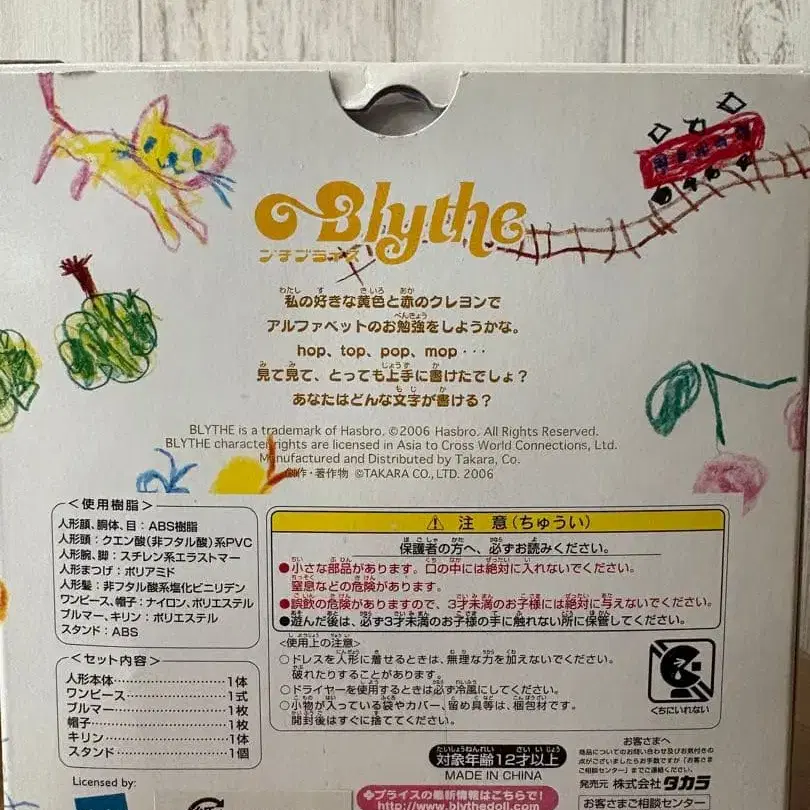 Blythe
プチブライス
私の好きな黄色と赤のクレヨンで
アルファベットのお勉強をしようかな。
hop、top、pop、mop・・・
見て見て、とっても上手に書けたでしょ？
あなたはどんな文字が書ける？
BLYTHE is a trademark of Hasbro. ©2006 Hasbro. All Rights Reserved.
BLYTHE character rights are licensed in Asia to Cross World Connections, Ltd.
Manufactured and Distributed by Takara, Co.
創作・著作物 ©TAKARA CO., LTD. 2006
＜使用樹脂＞
人形顔、胴体、目：ABS樹脂
人形頭：クエン酸（非フタル酸）系PVC
人形腕、脚：スチレン系エラストマー
人形まつげ：ポリアミド
人形髪：非フタル酸系塩化ビニリデン
ワンピース、帽子：ナイロン、ポリエステル
ブルマー、キリン：ポリエステル
スタンド：ABS
＜セット内容＞
人形本体 1体
ワンピース 1式
ブルマー 1枚
帽子 1枚
キリン 1体
スタンド 1個
Licensed by:
注 意（ちゅうい）
保護者の方へ、必ずお読みください。
●小さな部品があります。口の中には絶対に入れないでください。
窒息などの危険があります。
●誤飲の危険がありますので、3才未満のお子様には絶対に与えないでください。
●遊んだ後は、必ず3才未満のお子様の手に触れない所に保管してください。
＜使用上の注意＞
○ドレスを人形に着せるときは、無理な力を加えないでください。
破れたりすることがあります。
○ドライヤーを使用するときは必ず冷風にしてください。
○小物が入っている袋やカバー、留め具等は、梱包材です。
開封後はすぐに捨ててください。
くちにいれない
対象年齢12才以上
MADE IN CHINA
◆ブライスの最新情報はこちらで!
http://www.blythedoll.com
お客さまへ
商品についてのお問い合わせ及びお気付きの
点がございましたらお手数ですが「お客さま
ご相談センター」までご連絡ください。
発売元 株式会社 タカラ
お客さまご相談センター